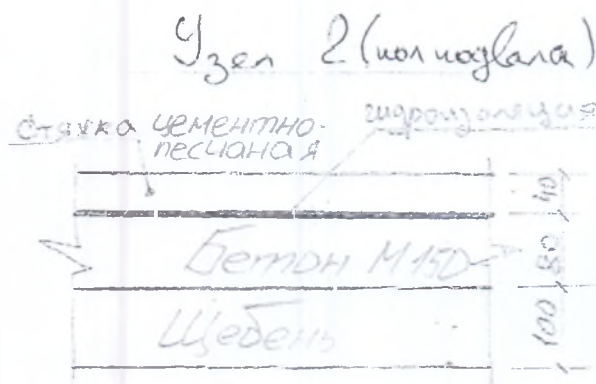 Узел 2 (пол подвала)
стяжка цементно-
песчаная
гидроизоляция
40
Бетон М150
80
Щебень
100